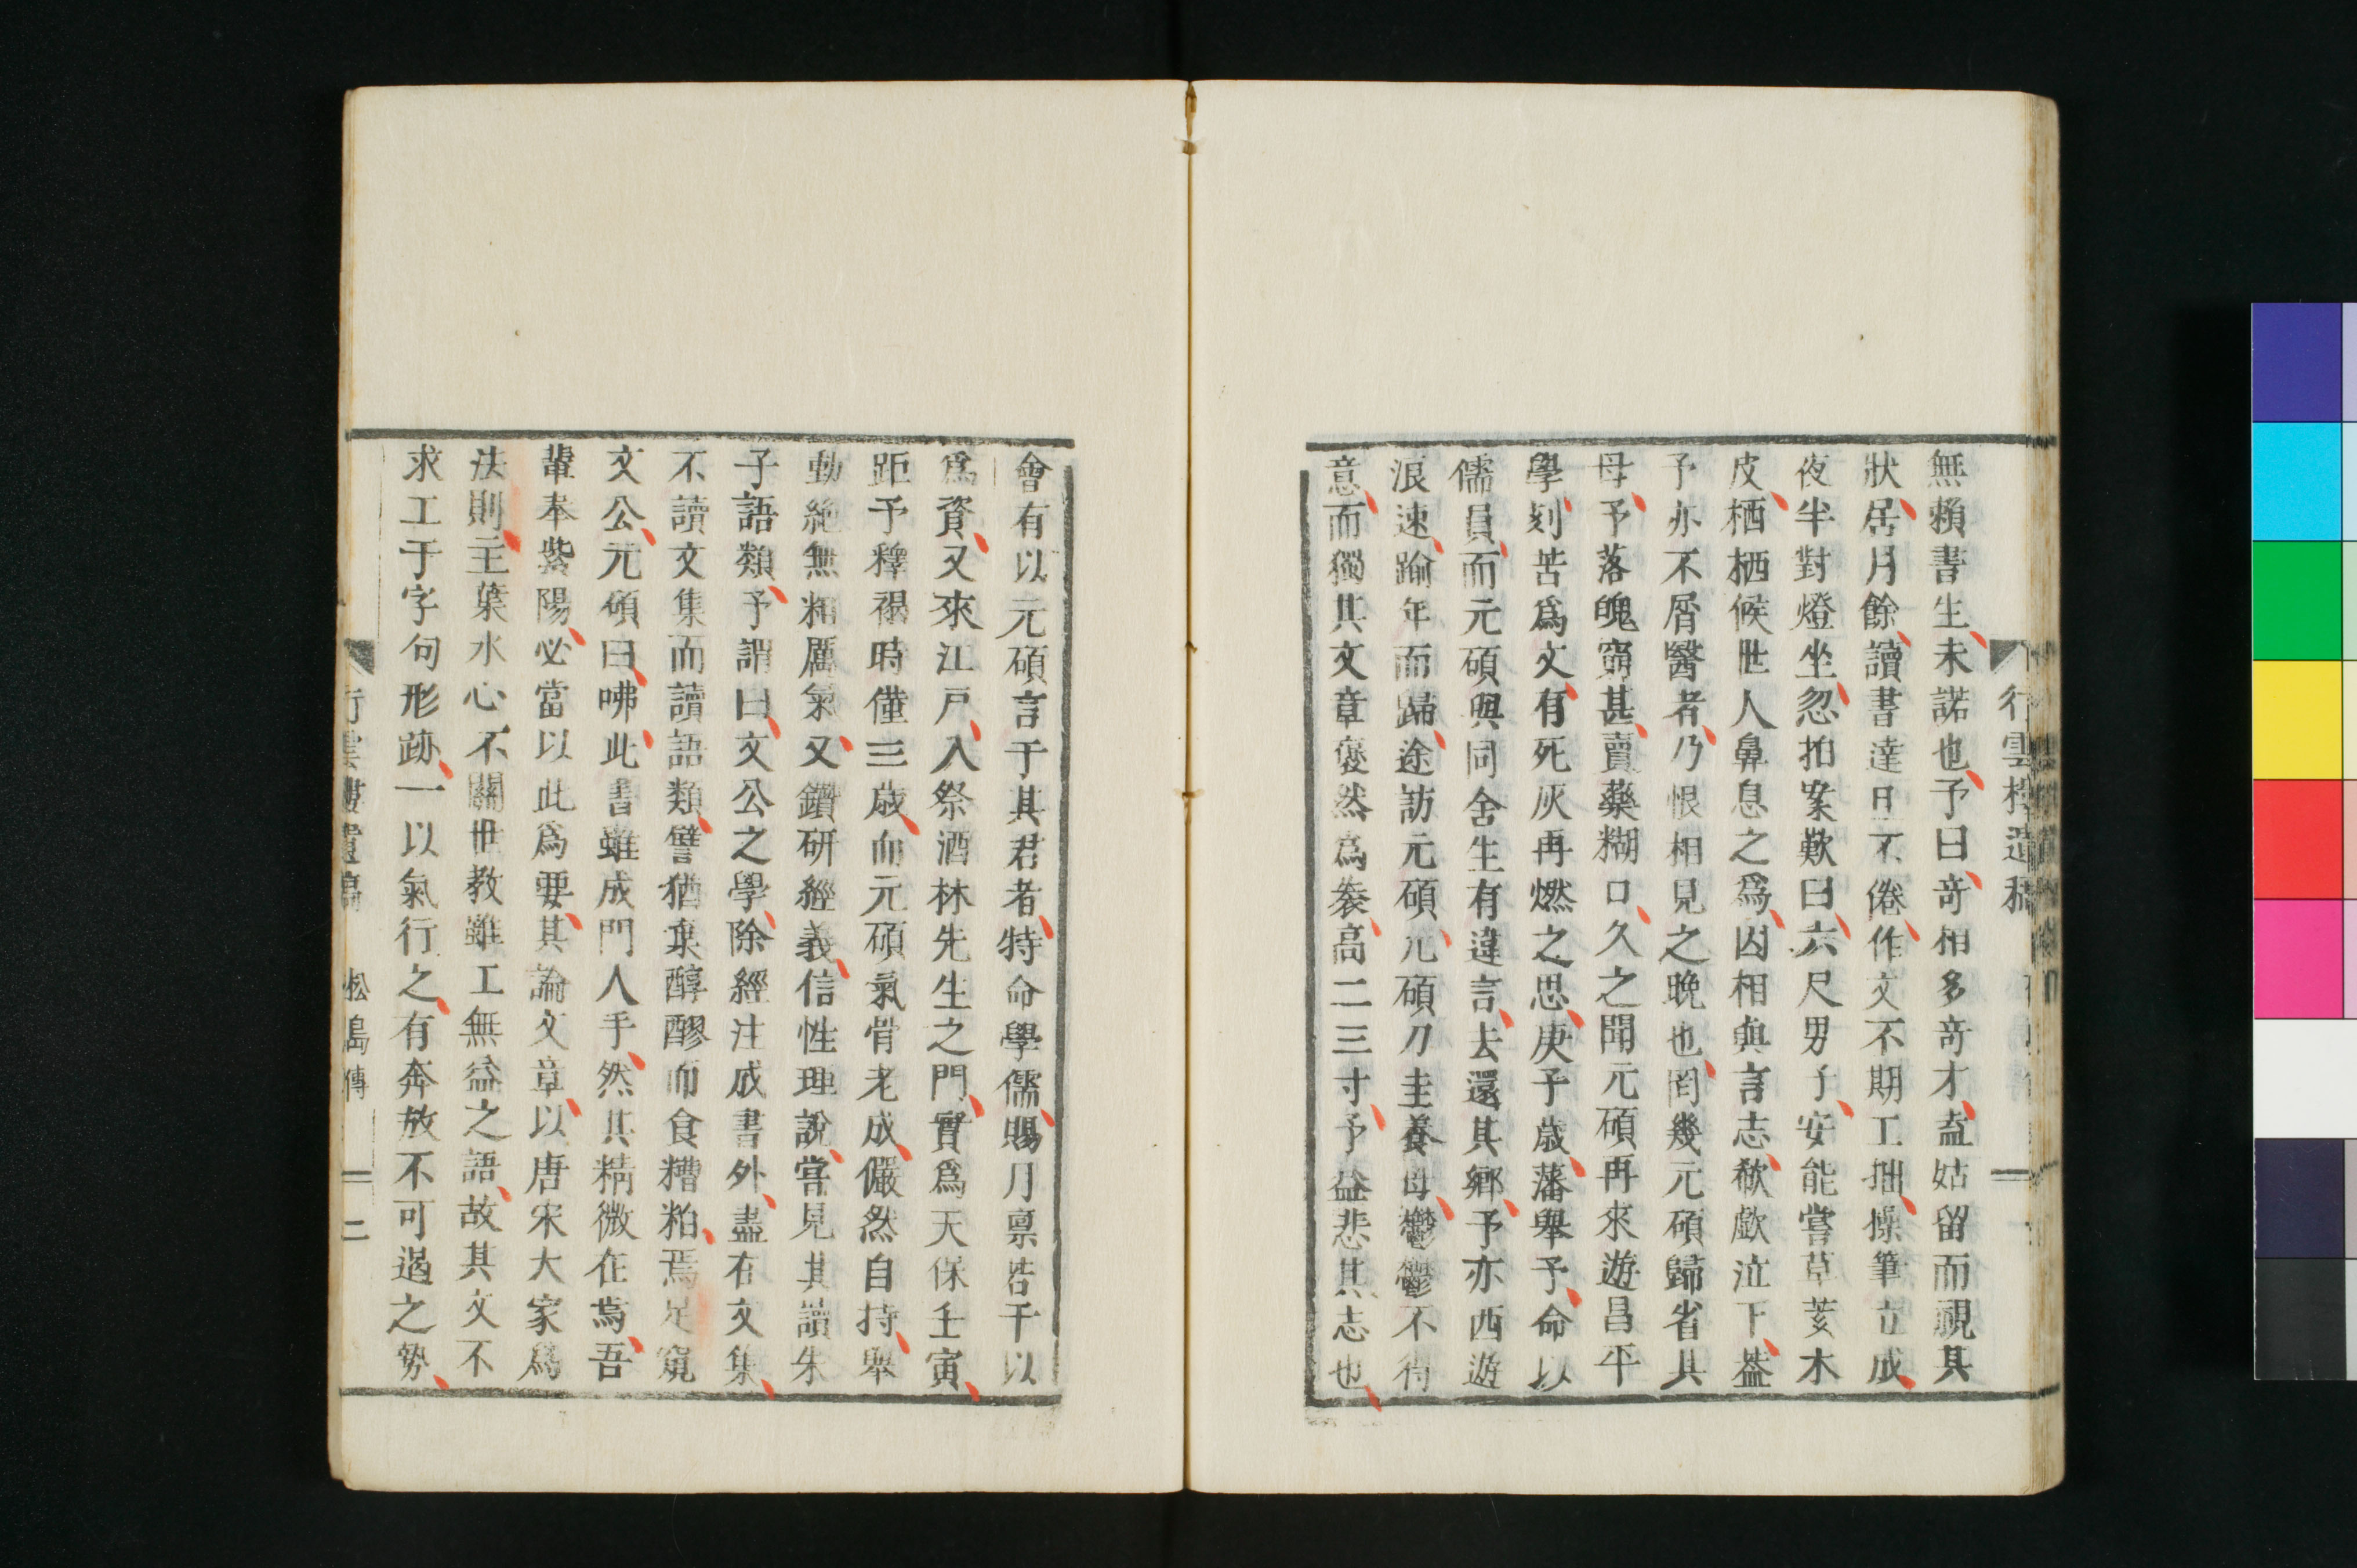 無賴書生未諾也予曰奇相多奇才盍姑留而視其
狀居月餘讀書達旦不倦作文不期工拙操筆立成
夜半對燈坐忽拍案歎曰六尺男子安能嘗草荄木
皮栖栖候世人鼻息之爲因相與言志欷歔泣下蓋
予亦不屑醫者乃恨相見之晚也罔幾元碩歸省其
母予落魄窮甚賣藥糊口久之聞元碩再來遊昌平
學刻苦爲文有死灰再燃之思庚子歳藩舉予命以
儒員而元碩與同舍生有違言去還其鄉予亦西遊
浪速踰年而歸途訪元碩元碩刀圭養母鬱鬱不得
意而獨其文章褎然爲袠高二三寸予益悲其志也
會有以元碩言于其君者特命學儒賜月稟若干以
爲資又來江戸入祭酒林先生之門實爲天保壬寅
距予釋褐時僅三歳而元碩氣骨老成儼然自持舉
動絶無粗厲氣又鑽研經義信性理說嘗見其讀朱
子語類予謂曰文公之學除經注成書外盡在文集
不讀文集而讀語類譬猶棄醇醪而食糟粕焉足窺
文公元碩曰咈此書雖成門人手然其精微在焉吾
輩奉紫陽必當以此爲要其論文章以唐宋大家爲
法則主葉水心不關世教雖工無益之語故其文不
求工于字句形跡一以氣行之有奔放不可遏之勢
行雲樓遺稿 松島傳 二